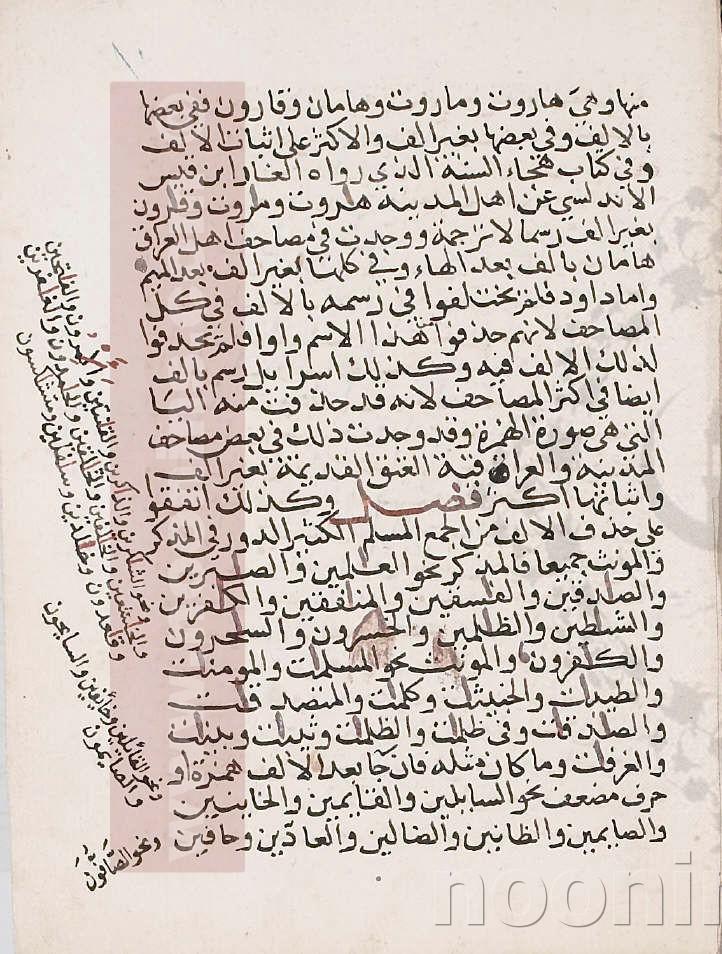 منها وهي هاروت وماروت وهامان وقارون ففي بعضها
بالالف وفي بعضها بغير الف والاكثر على اثبات الالف
وفي كتاب هجاء السنة الذي رواه الغاز ابن قيس
الاندلسي عن اهل المدينة هروت ومروت وقرون
بغير الف رسما لا ترجمة ووجدت في مصاحف اهل العراق
هامان بالف بعد الهاء وفي كلها بغير الف بعد الميم
واما داود فلم يختلفوا في رسمه بالالف في كل
المصاحف لانهم حذفوا من هذا الاسم واوا فلم يحذفوا
لذلك الالف فيه وكذلك اسرايل رسم بالف
ايضا في اكثر المصاحف لانه قد حذفت منه اليا
التي هي صورة الهمزة وقد وجدت ذلك في بعض مصاحف
المدينة والعراقية العتق القديمة بغير الف
واثباتها اكثر فصل وكذلك اتفقوا
على حذف الالف من الجمع المسلم الكثير الدور في المذكر
والمونث جميعا فالمذكر نحو العلمين والصبرين
والصدقين والفسقين والمنفقين والكفرين
والشيطين والظلمين والخسرون والسحرون
والكفرون والمونث نحو المسلمت والمومنت
والطيبت والخبيثت وكلمت والمتصدقت
والصدقت وفي ظلمت والظلمت وثيبت وبينت
والغرفت وما كان مثله فان جا بعد الالف همزة او
حرف مضعف نحو السايلين والقايمين والخاينين
والصايمين والظانين والضالين والعادين وحافين
ونحو الشكرين والذكرين والقنتين
والخشعين والغفلين والخلفين
وقعدون وخلدين وسفلين ومتشكسون
ونحو القائلين وخائفين والسايحون
والصايمون
ونحو الصافون
nooni